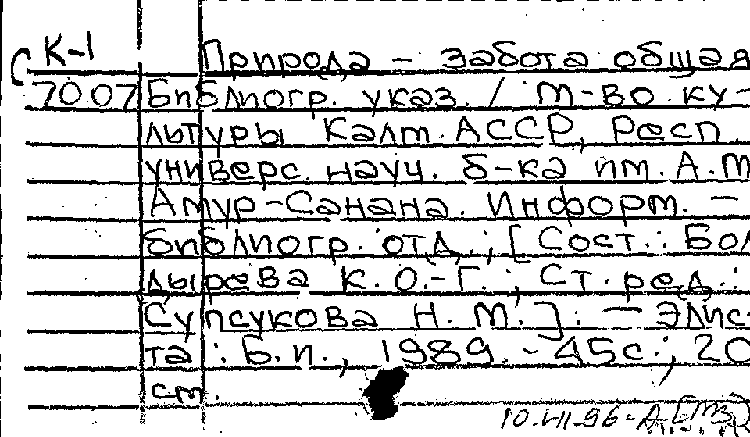 К-1
Природа – забота общая
С
7007 Библиогр. указ. / М-во ку-
льтуры Калм. АССР, Респ.
универс. науч. б-ка им. А.М
Амур-Санана. Информ. –
библиогр. отд.; [Сост.: Бол
дырева К. О.-Г.; Ст. ред.:
Супсукова Н. М.]. – Элис-
та: Б.и., 1989. - 45с.; 20
см.
10.VII.96-